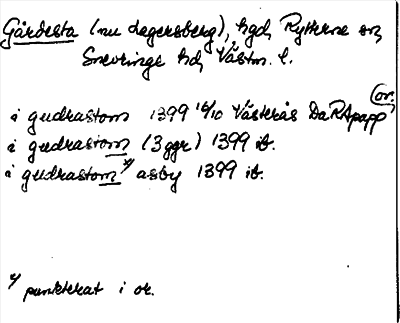 Gårdesta (nu Lagersberg), hgd, Rytterne sn,
Snevringe hd, Västm. l.
i gudrastom 1399 16/10 Västerås DaRApapp (or.)
i gudrastom (3 ggr) 1399 ib.
i gudrastom x) asby 1399 ib.
x) punkterat i or.